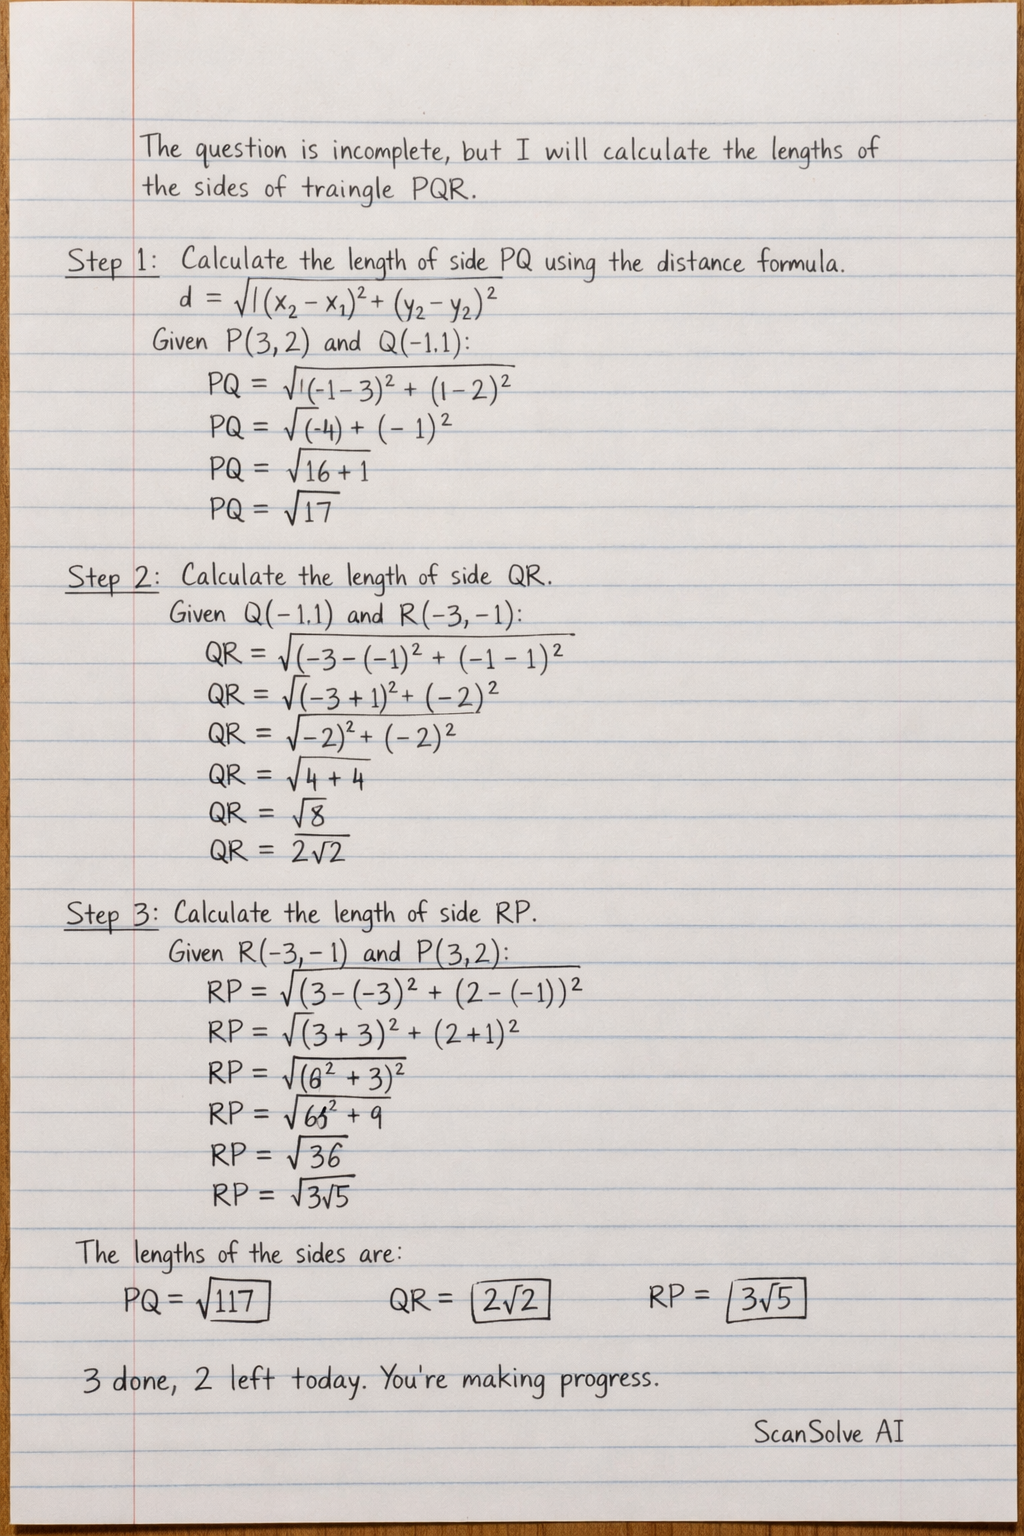 The question is incomplete, but I will calculate the lengths of
the sides of traingle PQR.
Step 1: Calculate the length of side PQ using the distance formula.
d = √|(x₂ − x₁)² + (y₂ − y₂)²
Given P(3, 2) and Q(−1.1):
PQ = √|(-1 − 3)² + (1 − 2)²
PQ = √(-4) + (− 1)²
PQ = √16 + 1
PQ = √17
Step 2: Calculate the length of side QR.
Given Q(−1.1) and R(−3, −1):
QR = √(−3 − (−1)² + (−1 − 1)²
QR = √(−3 + 1)² + (−2)²
QR = √−2)² + (−2)²
QR = √4 + 4
QR = √8
QR = 2√2
Step 3: Calculate the length of side RP.
Given R(−3, −1) and P(3,2):
RP = √(3 − (−3)² + (2 − (−1))²
RP = √(3 + 3)² + (2 + 1)²
RP = √(6² + 3)²
RP = √ + 9
RP = √36
RP = √3√5
The lengths of the sides are:
PQ = √117 QR = 2√2 RP = 3√5
3 done, 2 left today. You're making progress.
ScanSolve AI